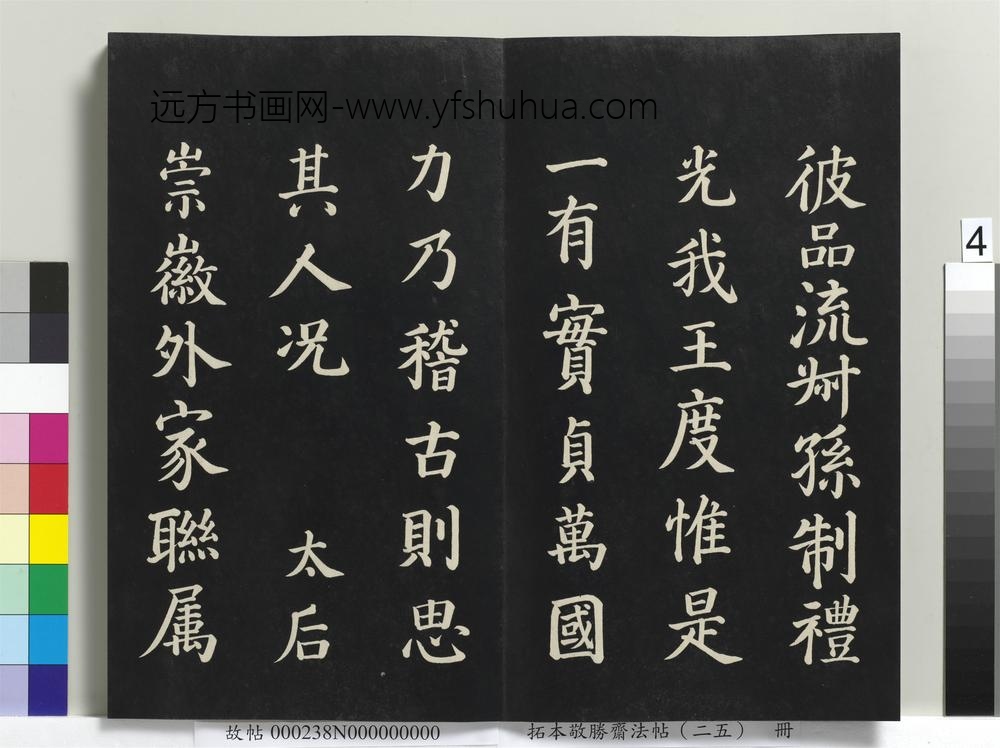 远方书画网-www.yfshuhua.com
彼品流州孫制禮
光我王度惟是
一有實貞萬國
力乃稽古則思
其人况 太后
崇徽外家聯属
4
故帖 000238N000000000
拓本敬勝齋法帖（二五） 冊